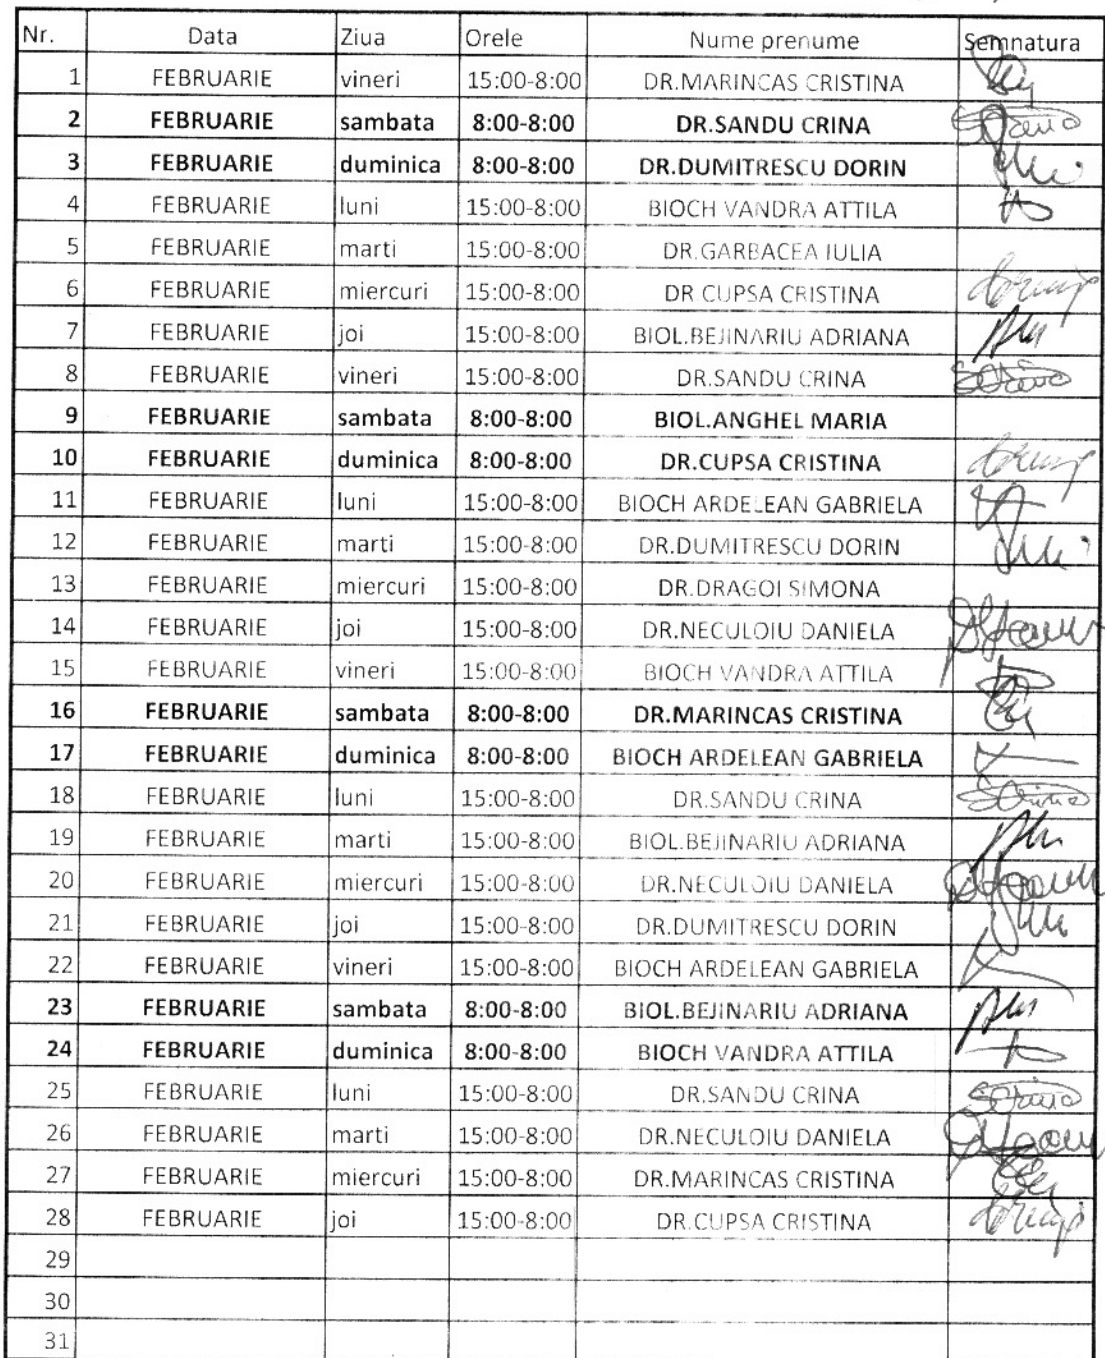 Nr. Data Ziua Orele Nume prenume Semnatura
1 FEBRUARIE vineri 15:00-8:00 DR.MARINCAS CRISTINA
2 FEBRUARIE sambata 8:00-8:00 DR.SANDU CRINA
3 FEBRUARIE duminica 8:00-8:00 DR.DUMITRESCU DORIN
4 FEBRUARIE luni 15:00-8:00 BIOCH VANDRA ATTILA
5 FEBRUARIE marti 15:00-8:00 DR.GARBACEA IULIA
6 FEBRUARIE miercuri 15:00-8:00 DR.CUPSA CRISTINA
7 FEBRUARIE joi 15:00-8:00 BIOL.BEJINARIU ADRIANA
8 FEBRUARIE vineri 15:00-8:00 DR.SANDU CRINA
9 FEBRUARIE sambata 8:00-8:00 BIOL.ANGHEL MARIA
10 FEBRUARIE duminica 8:00-8:00 DR.CUPSA CRISTINA
11 FEBRUARIE luni 15:00-8:00 BIOCH ARDELEAN GABRIELA
12 FEBRUARIE marti 15:00-8:00 DR.DUMITRESCU DORIN
13 FEBRUARIE miercuri 15:00-8:00 DR.DRAGOI SIMONA
14 FEBRUARIE joi 15:00-8:00 DR.NECULOIU DANIELA
15 FEBRUARIE vineri 15:00-8:00 BIOCH VANDRA ATTILA
16 FEBRUARIE sambata 8:00-8:00 DR.MARINCAS CRISTINA
17 FEBRUARIE duminica 8:00-8:00 BIOCH ARDELEAN GABRIELA
18 FEBRUARIE luni 15:00-8:00 DR.SANDU CRINA
19 FEBRUARIE marti 15:00-8:00 BIOL.BEJINARIU ADRIANA
20 FEBRUARIE miercuri 15:00-8:00 DR.NECULOIU DANIELA
21 FEBRUARIE joi 15:00-8:00 DR.DUMITRESCU DORIN
22 FEBRUARIE vineri 15:00-8:00 BIOCH ARDELEAN GABRIELA
23 FEBRUARIE sambata 8:00-8:00 BIOL.BEJINARIU ADRIANA
24 FEBRUARIE duminica 8:00-8:00 BIOCH VANDRA ATTILA
25 FEBRUARIE luni 15:00-8:00 DR.SANDU CRINA
26 FEBRUARIE marti 15:00-8:00 DR.NECULOIU DANIELA
27 FEBRUARIE miercuri 15:00-8:00 DR.MARINCAS CRISTINA
28 FEBRUARIE joi 15:00-8:00 DR.CUPSA CRISTINA
29
30
31